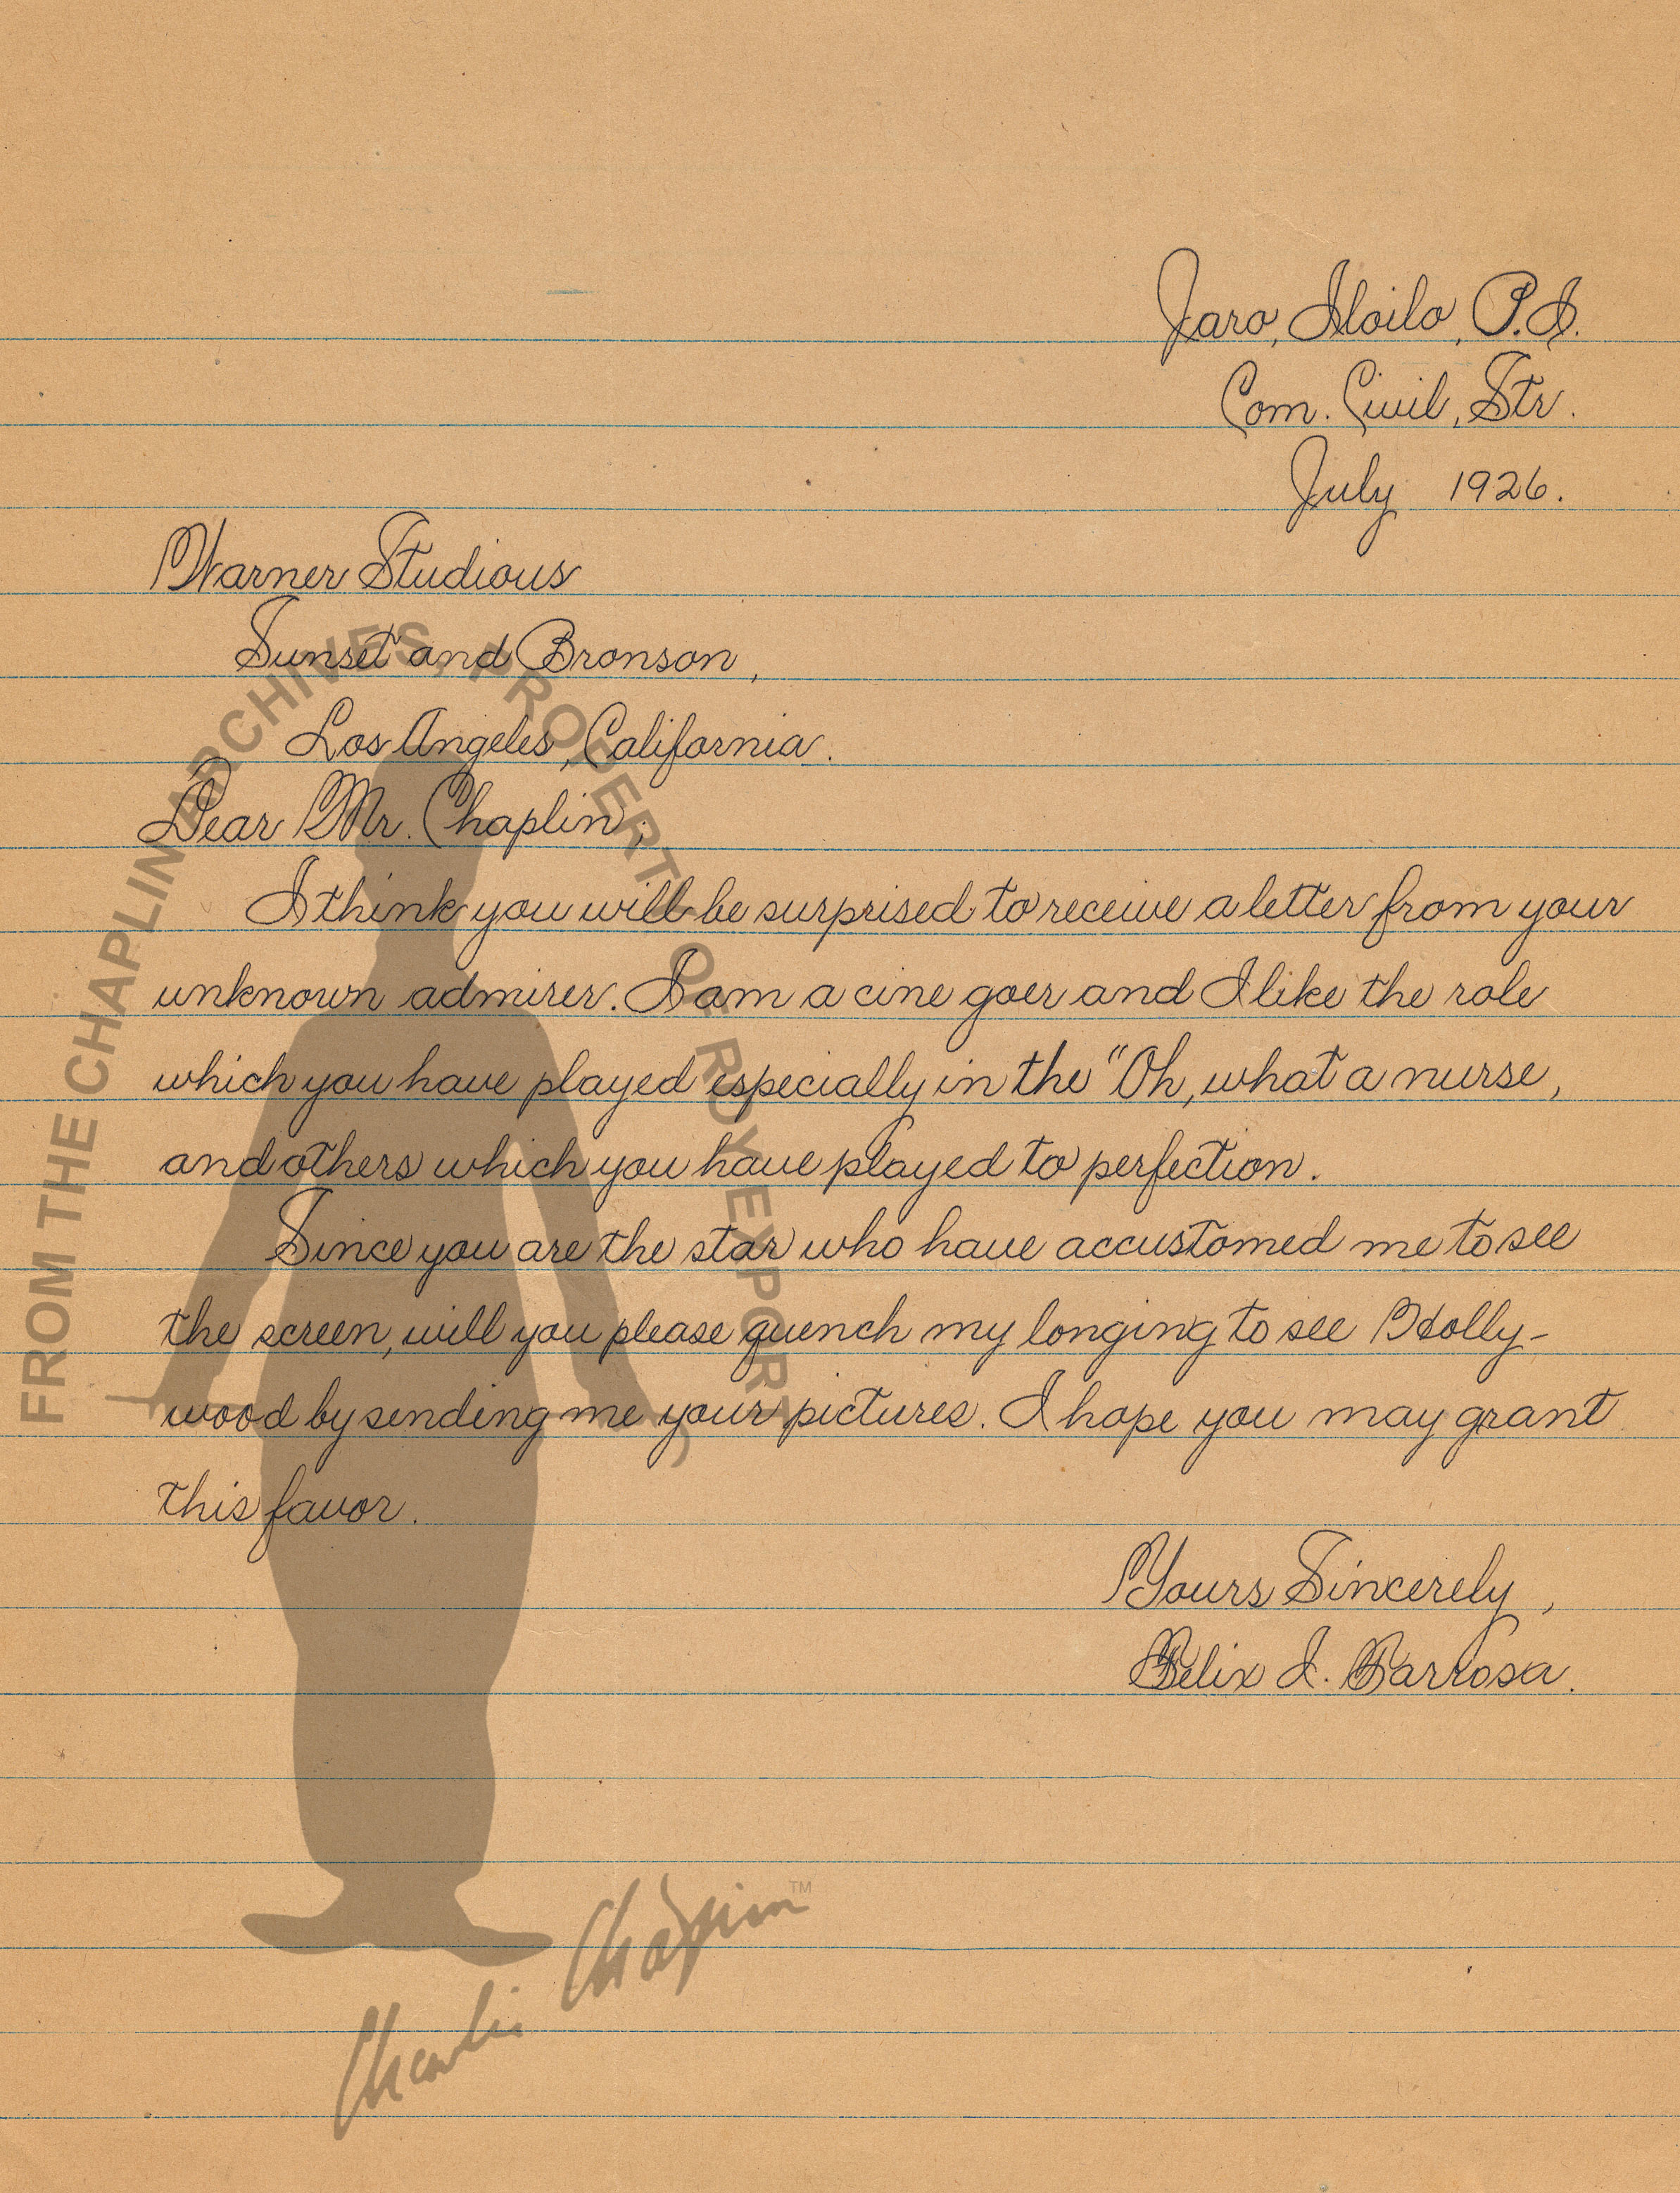 Jaro, Iloilo, P.I.
Com. Civil, Str.
July 1926.
Warner Studious
Sunset and Bronson,
Los Angeles, California.
Dear Mr. Chaplin;
I think you will be surprised to receive a letter from your
unknown admirer. I am a cine goer and I like the role
which you have played especially in the "Oh, what a nurse,
and others which you have played to perfection.
Since you are the star who have accustomed me to see
the screen, will you please quench my longing to see Holly-
wood by sending me your pictures. I hope you may grant
this favor.
Yours Sincerely,
Felix I. Parrosa.
FROM THE CHAPLIN ARCHIVES, PROPERTY OF ROY EXPORT S
Charlie Chaplin™